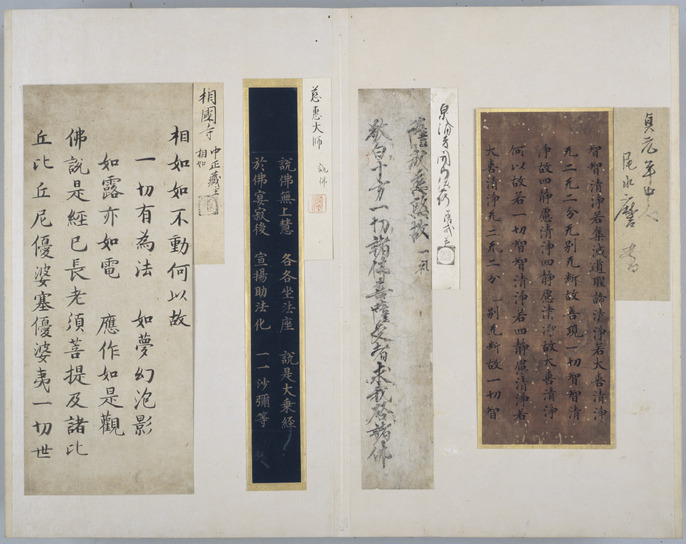 貞元年中人
智智清淨若集滅道聖諦清淨若大喜清淨
无二无二分无別无斷故善現一切智智清
淨故四靜慮清淨四靜慮清淨故大喜清淨
何以故若一切智智清淨若四靜慮清淨若
大喜清淨无二无二分无別无斷故一切智
敬白十方一切諸佛菩薩
慈惠大師
說佛
說佛無上慧 各各坐法座 說是大乘經
於佛宴寂後 宣揚助法化 一一沙彌等
相國寺
中正藏主
相如
相如如不動何以故
一切有為法 如夢幻泡影
如露亦如電 應作如是觀
佛說是經已長老須菩提及諸比
丘比丘尼優婆塞優婆夷一切世